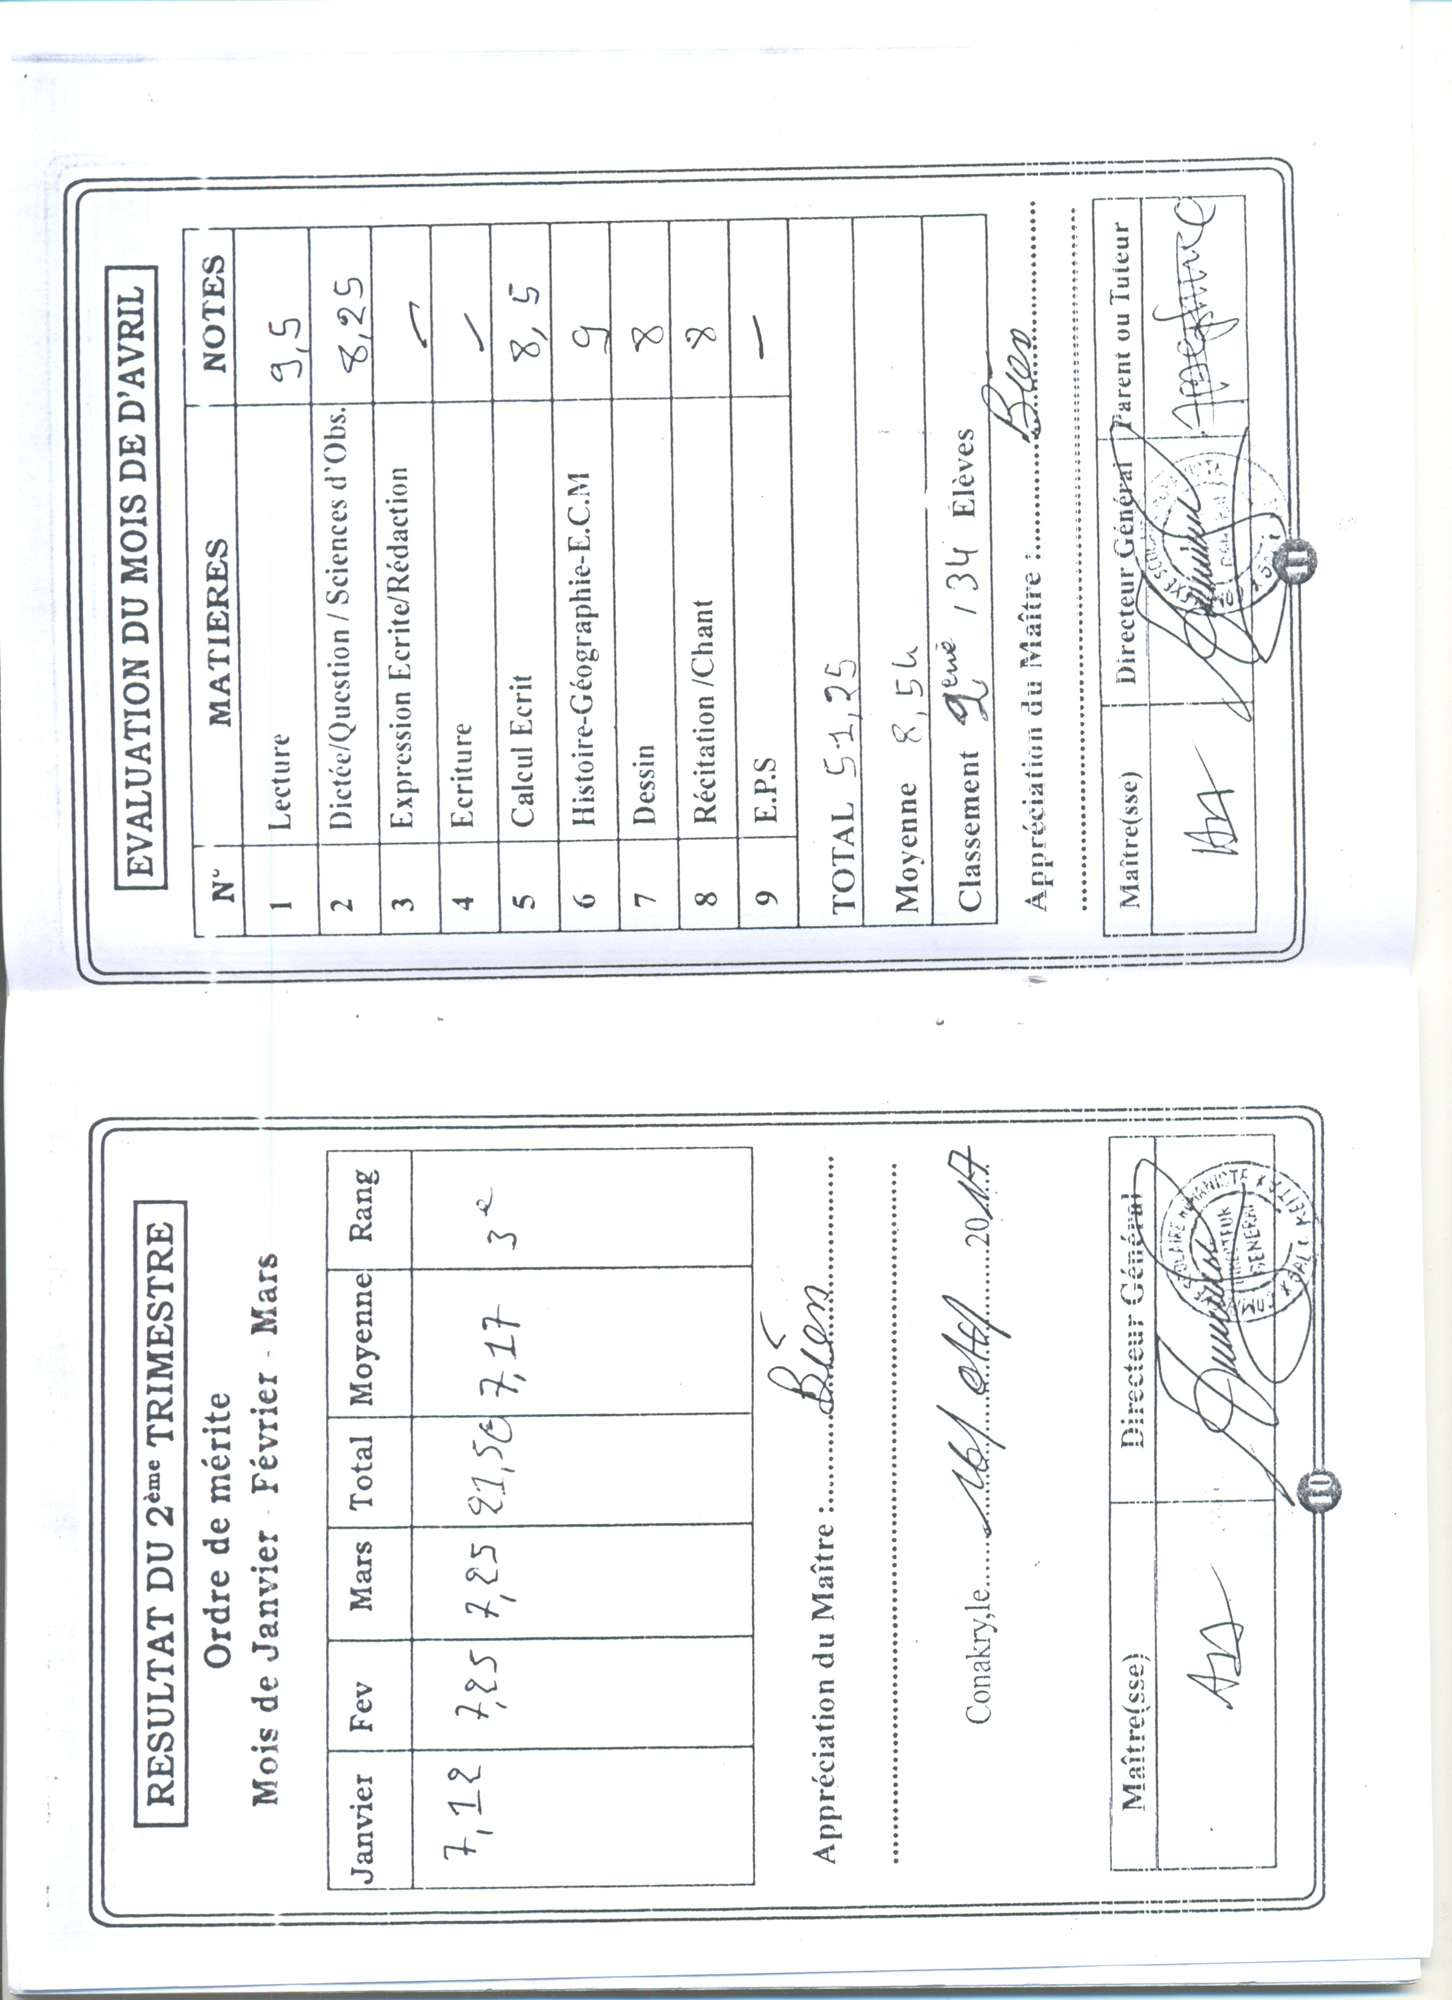 RESULTAT DU 2ème TRIMESTRE
Ordre de mérite
Mois de Janvier - Février - Mars
Janvier Fev Mars Total Moyenne Rang
7,12 7,25 7,25 7,17 3e
Appréciation du Maître : Bien
Conakry,le 2017
Maître(sse) Directeur Général
10
EVALUATION DU MOIS DE D'AVRIL
N° MATIERES NOTES
1 Lecture 9,5
2 Dictée/Question / Sciences d'Obs. 8,25
3 Expression Ecrite/Rédaction
4 Ecriture
5 Calcul Ecrit 8,5
6 Histoire-Géographie-E.C.M 9
7 Dessin 8
8 Récitation /Chant 8
9 E.P.S –
TOTAL 51,25
Moyenne 8,54
Classement 2ème / 34 Elèves
Appréciation du Maître : Bien
Maître(sse) Directeur Général Parent ou Tuteur
11